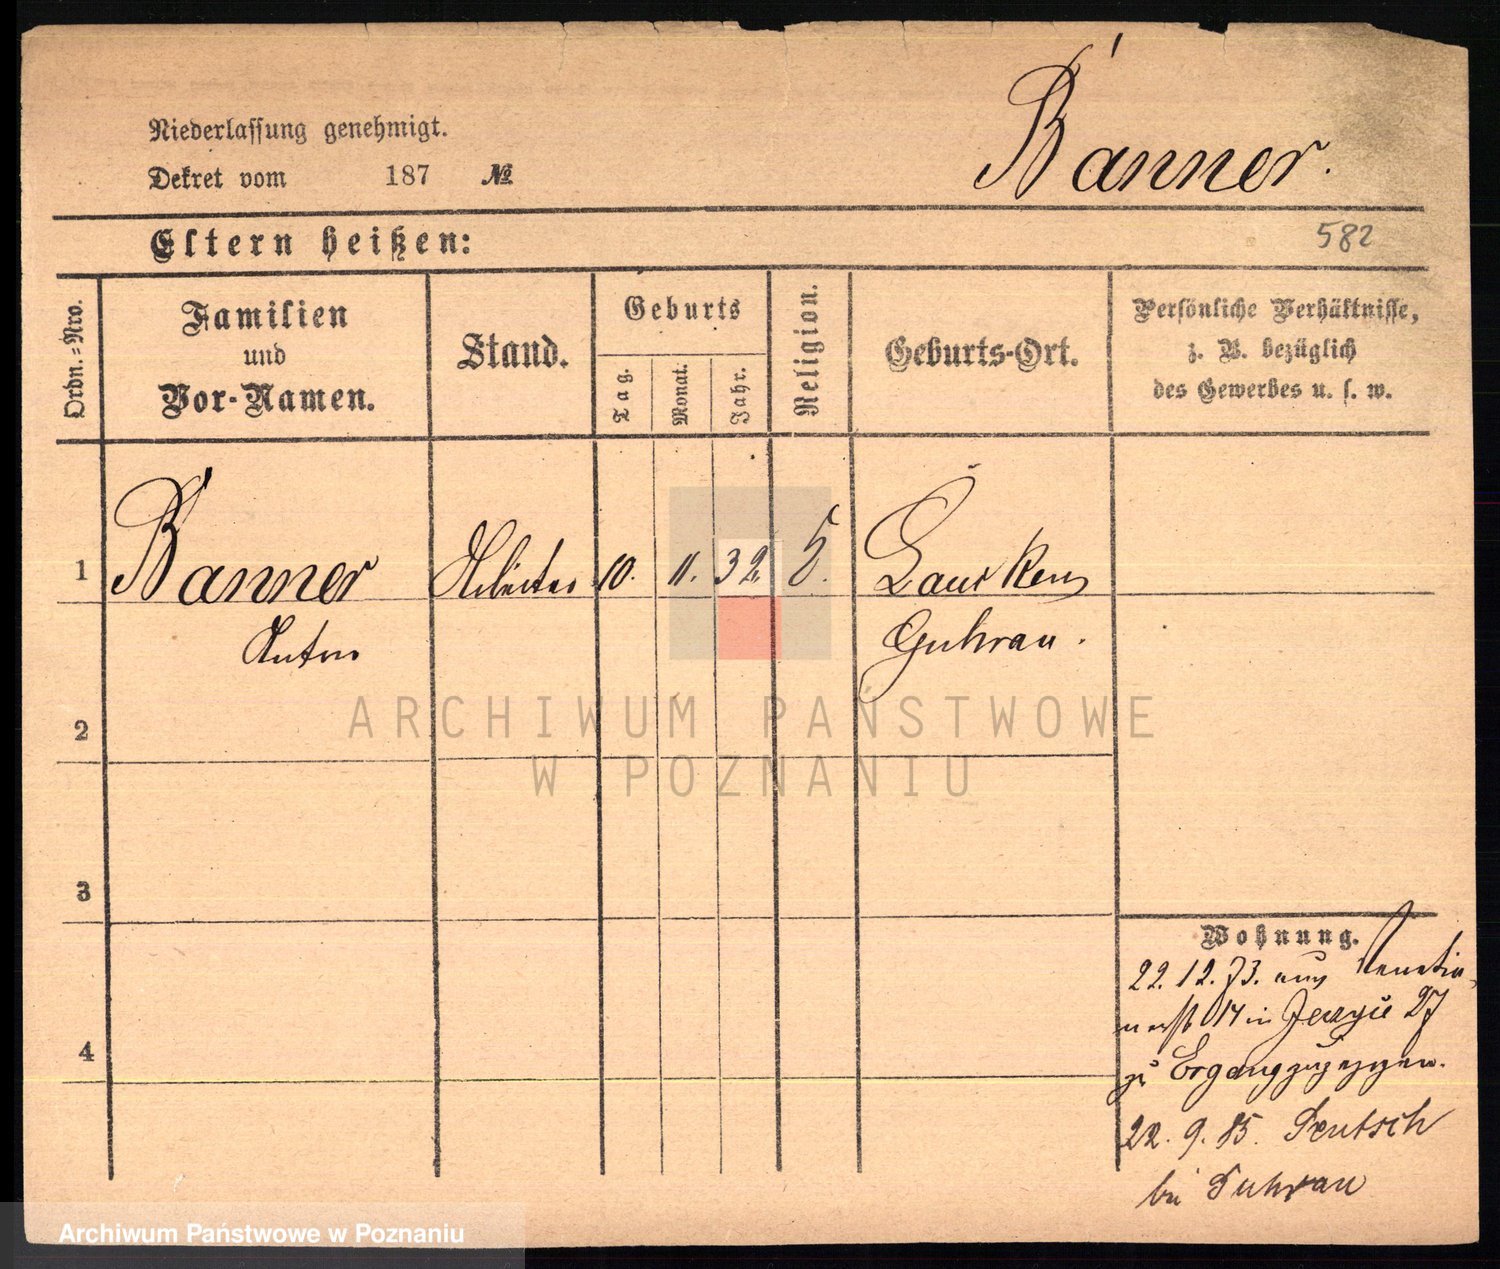 Niederlassung genehmigt.
Dekret vom 187 №
Banner.
Eltern heißen:
582
Ordn.=Nro.
Familien
und
Vor-Namen.
Stand.
Geburts
Tag.
Monat.
Jahr.
Religion.
Geburts-Ort.
Persönliche Verhältnisse,
z. B. bezüglich
des Gewerbes u. s. w.
1
Banner
Anton
Arbeiter
10.
11.
32.
Guhrau.
2
3
4
ARCHIWUM PAŃSTWOWE
W POZNANIU
Wohnung.
22. 12. 73. aus
in 27
zu
22. 9. 85. Deutsch
bei Guhrau
Archiwum Państwowe w Poznaniu